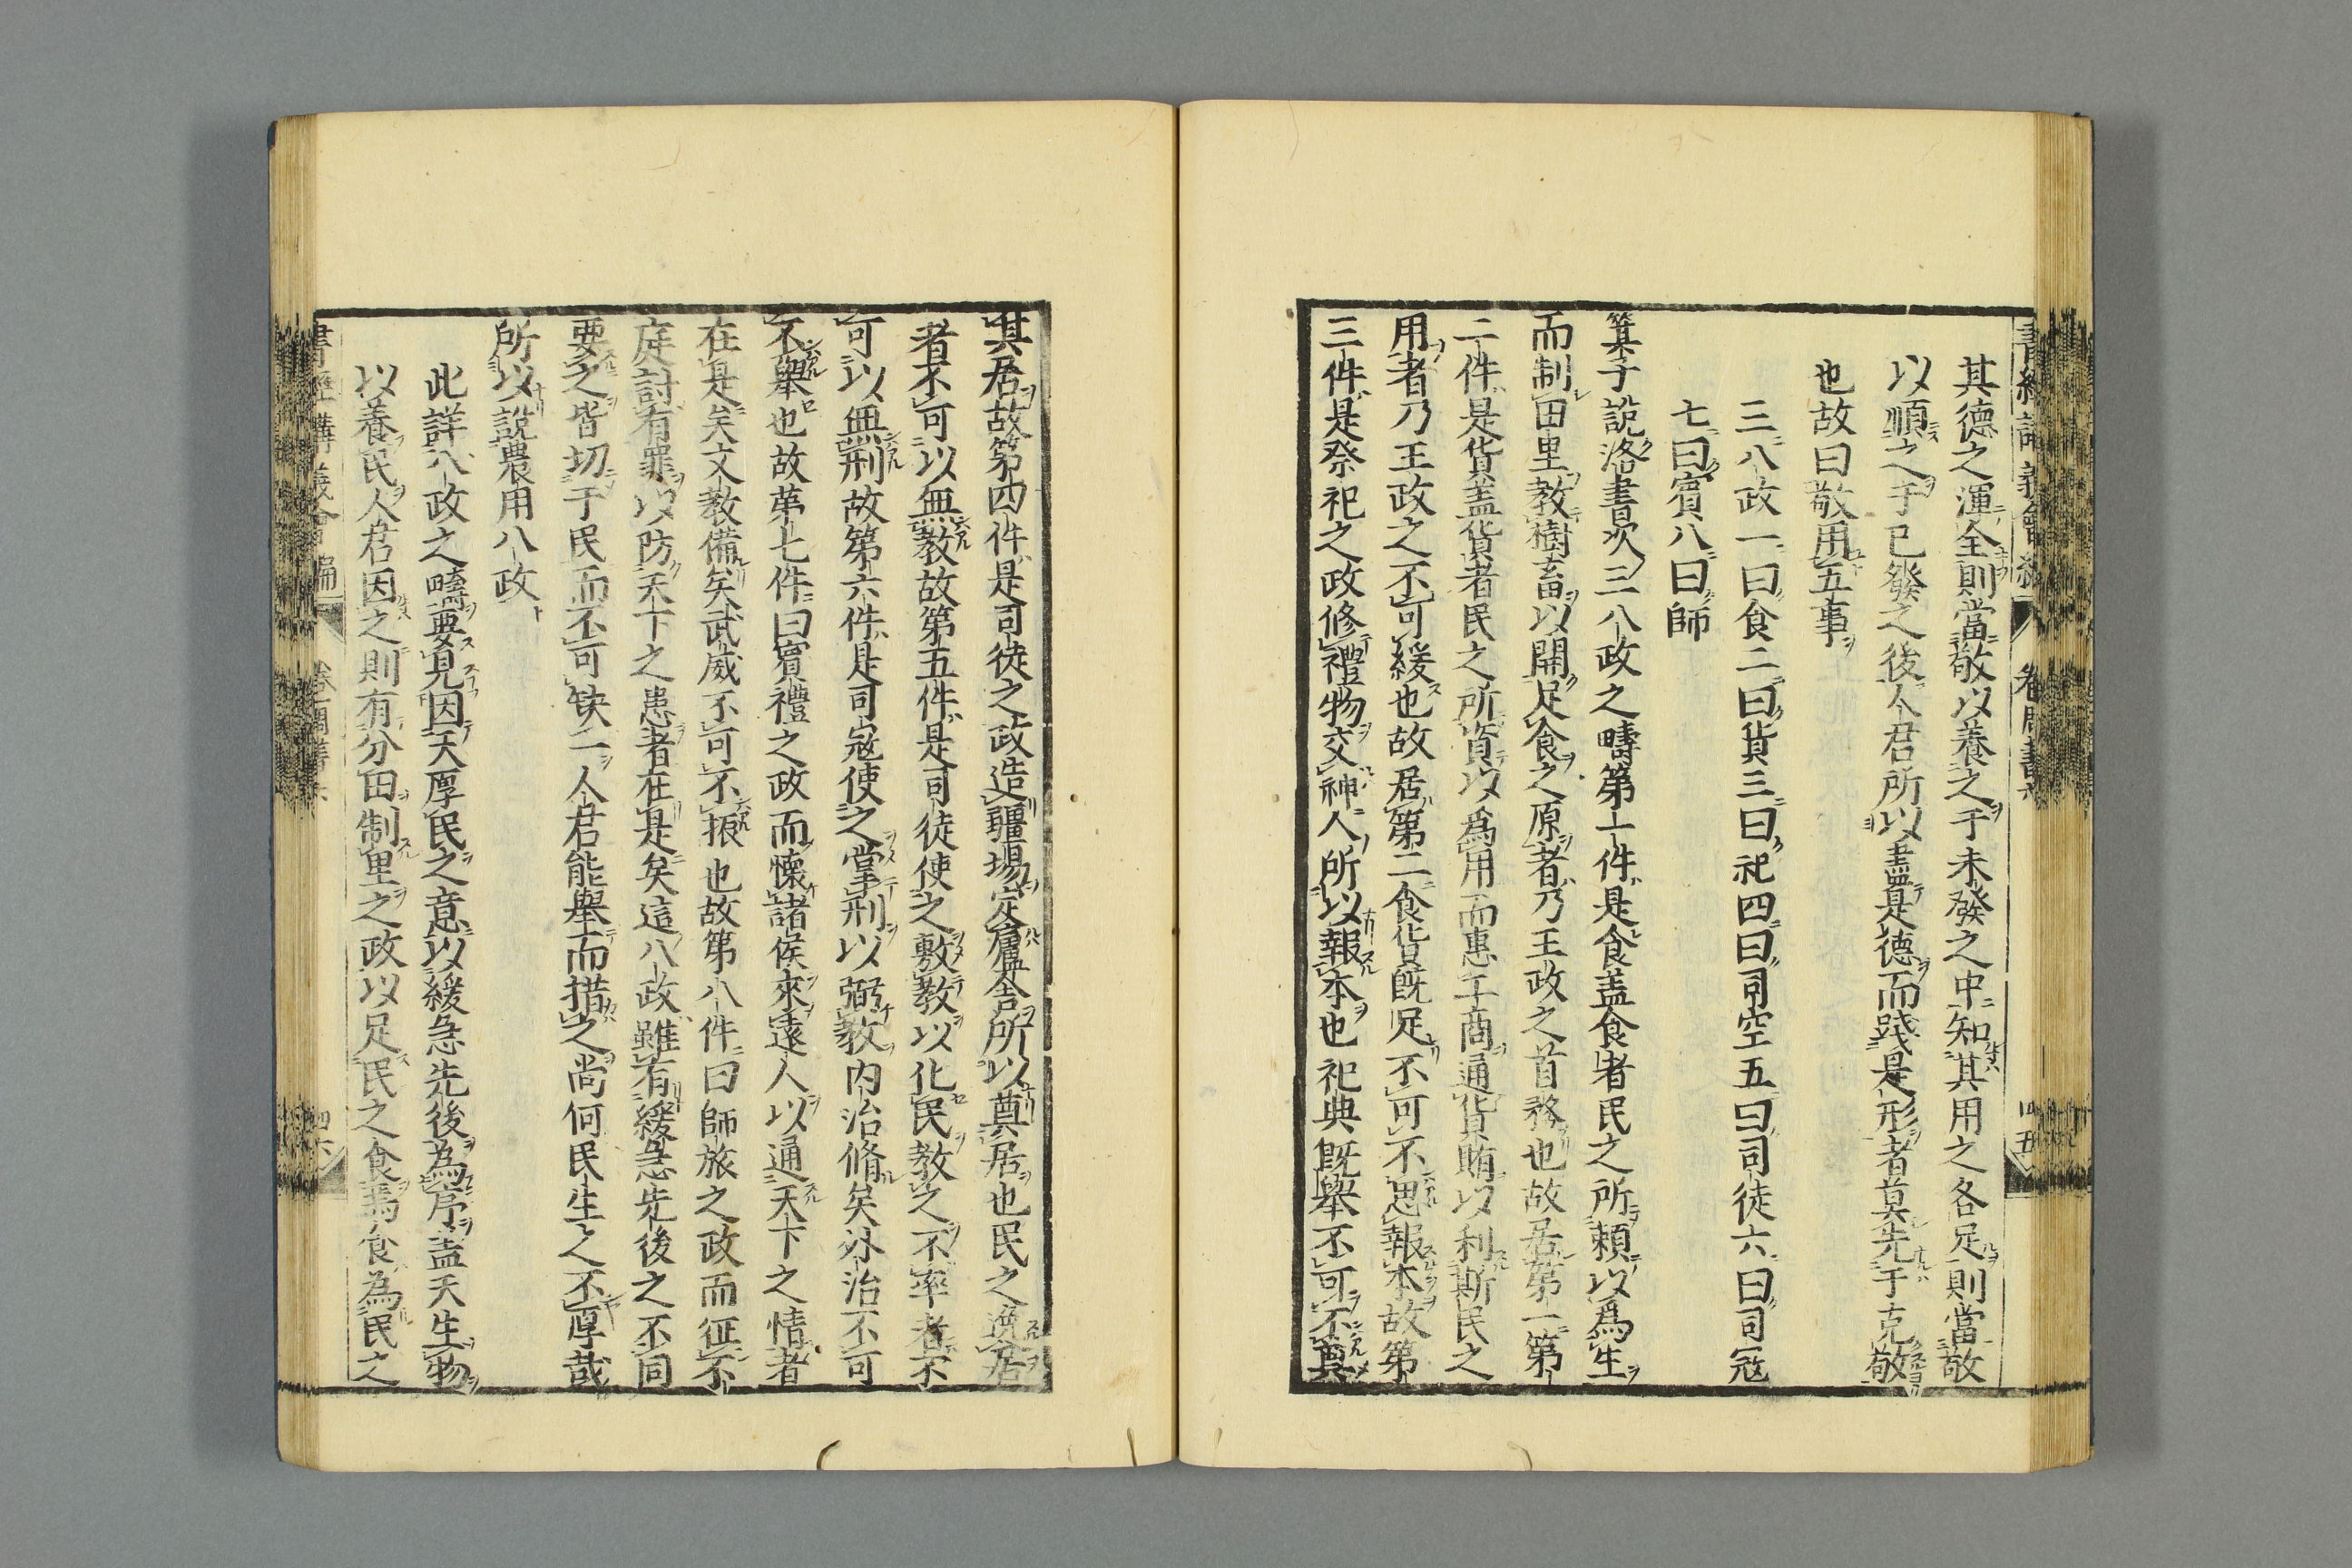 其德之渾全則當敬以養之于未發之中知其用之各足則當敬
以順之于已發之後人君所以盡是德而踐是形者莫先于克敬
也故曰敬用五事
三八政一曰食二曰貨三曰祀四曰司空五曰司徒六曰司冦
七曰賓八曰師
箕子說洛書次三八政之疇第一件是食盖食者民之所頼以爲生
而制田里教樹畜以開足食之原者乃王政之首務也故居第一第
二件是貨盖貨者民之所資以爲用而惠工商通貨賄以利斯民之
用者乃王政之不可緩也故居第二食貨既足不可不思報本故第
三件是祭祀之政修禮物交神人所以報本也祀典既舉不可不奠
其居故第四件是司徒之政造疆場定廬舎所以奠居也民之逸居
者不可以無教故第五件是司徒使之敷教以化民教之不率者不
可以無刑故第六件是司冦使之掌刑以弼教内治脩矣外治不可
不舉也故苐七件曰賓禮之政而懷諸侯來遠人以通天下之情者
在是矣文教備矣武威不可不振也故第八件曰師旅之政而征不
庭討有罪以防天下之患者在是矣這八政雖有緩急先後之不同
要之皆切于民而不可缺一人君能舉而措之尚何民生之不厚哉
所以說農用八政
此詳八政之疇要見因天厚民之意以緩急先後為序盖天生物
以養民人君因之則有分田制里之政以足民之食焉食為民之
書經講義會編
卷 周書六
四六
四五